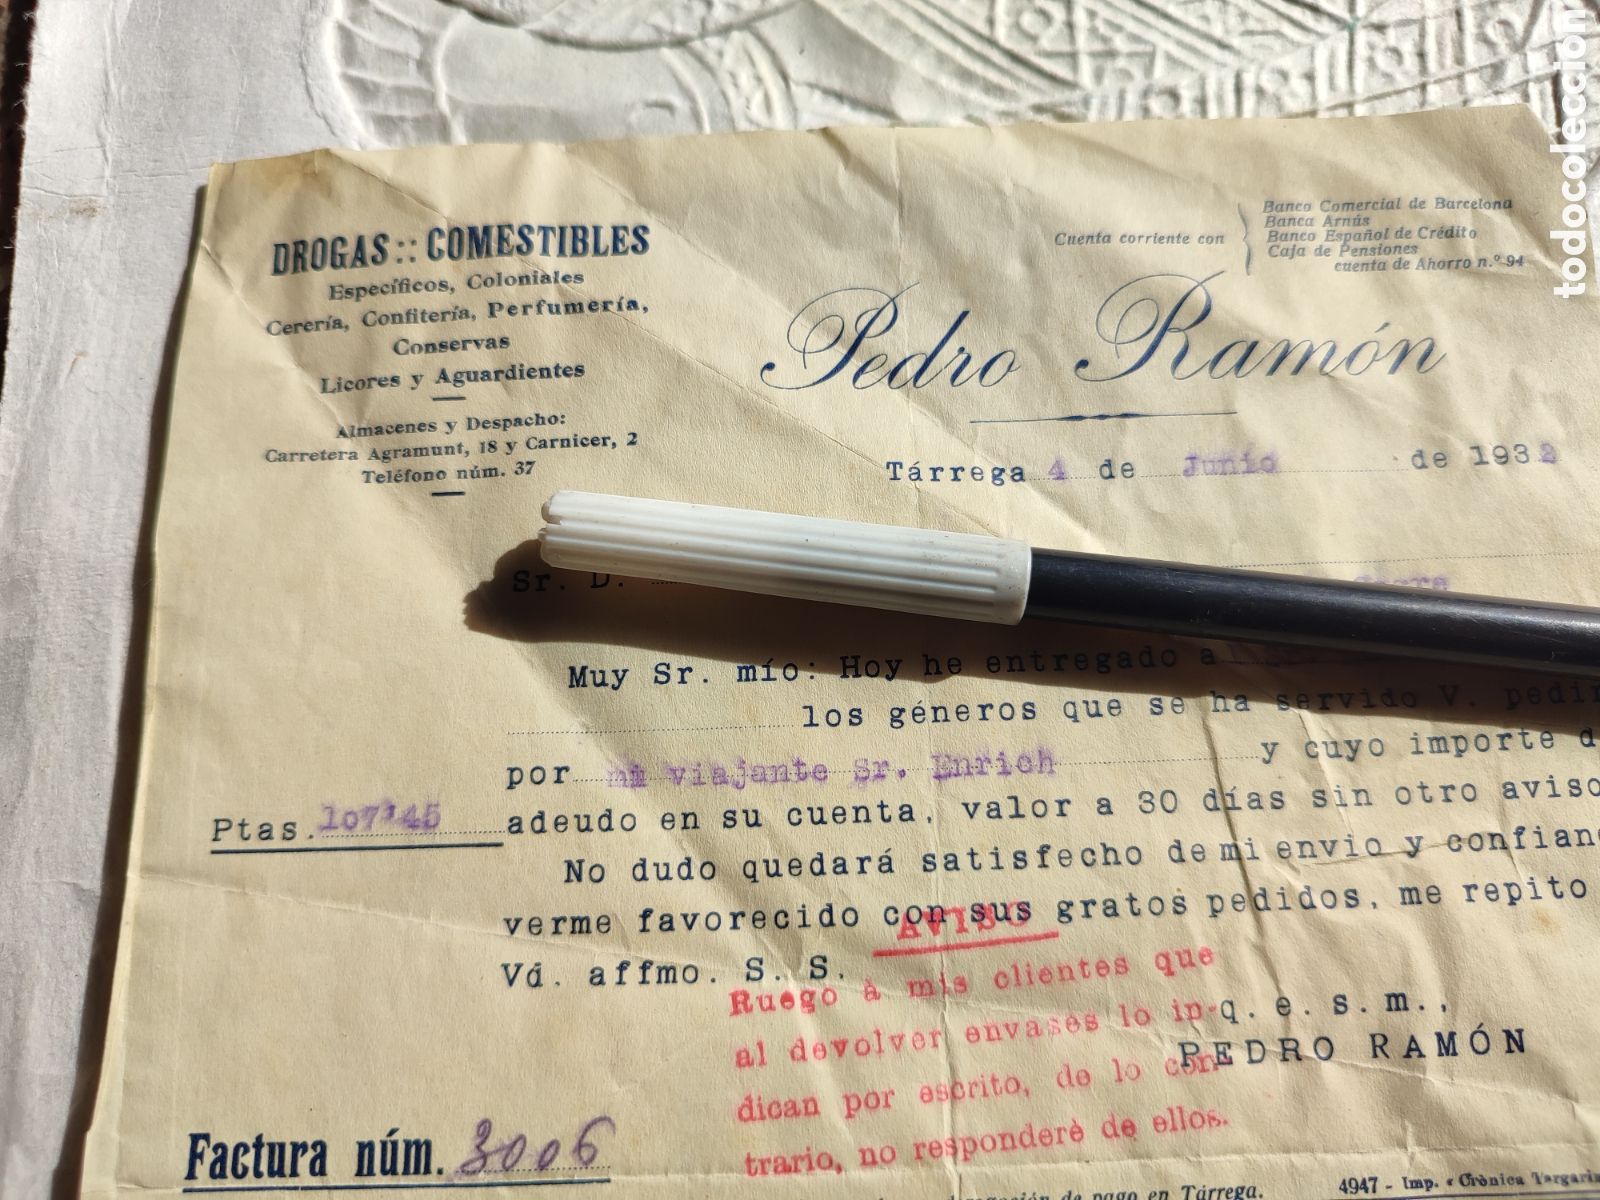 DROGAS :: COMESTIBLES
Específicos, Coloniales
Cerería, Confitería, Perfumería,
Conservas
Licores y Aguardientes
Almacenes y Despacho:
Carretera Agramunt, 18 y Carnicer, 2
Teléfono núm. 37
Cuenta corriente con
Banco Comercial de Barcelona
Banca Arnús
Banco Español de Crédito
Caja de Pensiones
cuenta de Ahorro n.º 94
Pedro Ramón
Tárrega 4 de Junio de 1932
Sr. D.
Muy Sr. mío: Hoy he entregado a
los géneros que se ha servido V. pedir
por mi viajante Sr. Enrich y cuyo importe
Ptas. 107'45 adeudo en su cuenta, valor a 30 días sin otro aviso
No dudo quedará satisfecho de mi envio y
verme favorecido con sus gratos pedidos, me repito
Vd. affmo. S. S.
q. e. s. m.,
PEDRO RAMÓN
AVISO
Ruego à mis clientes que
al devolver envases lo in-
dican por escrito, de lo con
trario, no responderè de ellos.
Factura núm. 3006
de pago en Tárrega.
4947 - Imp. «Crònica
todocoleccion